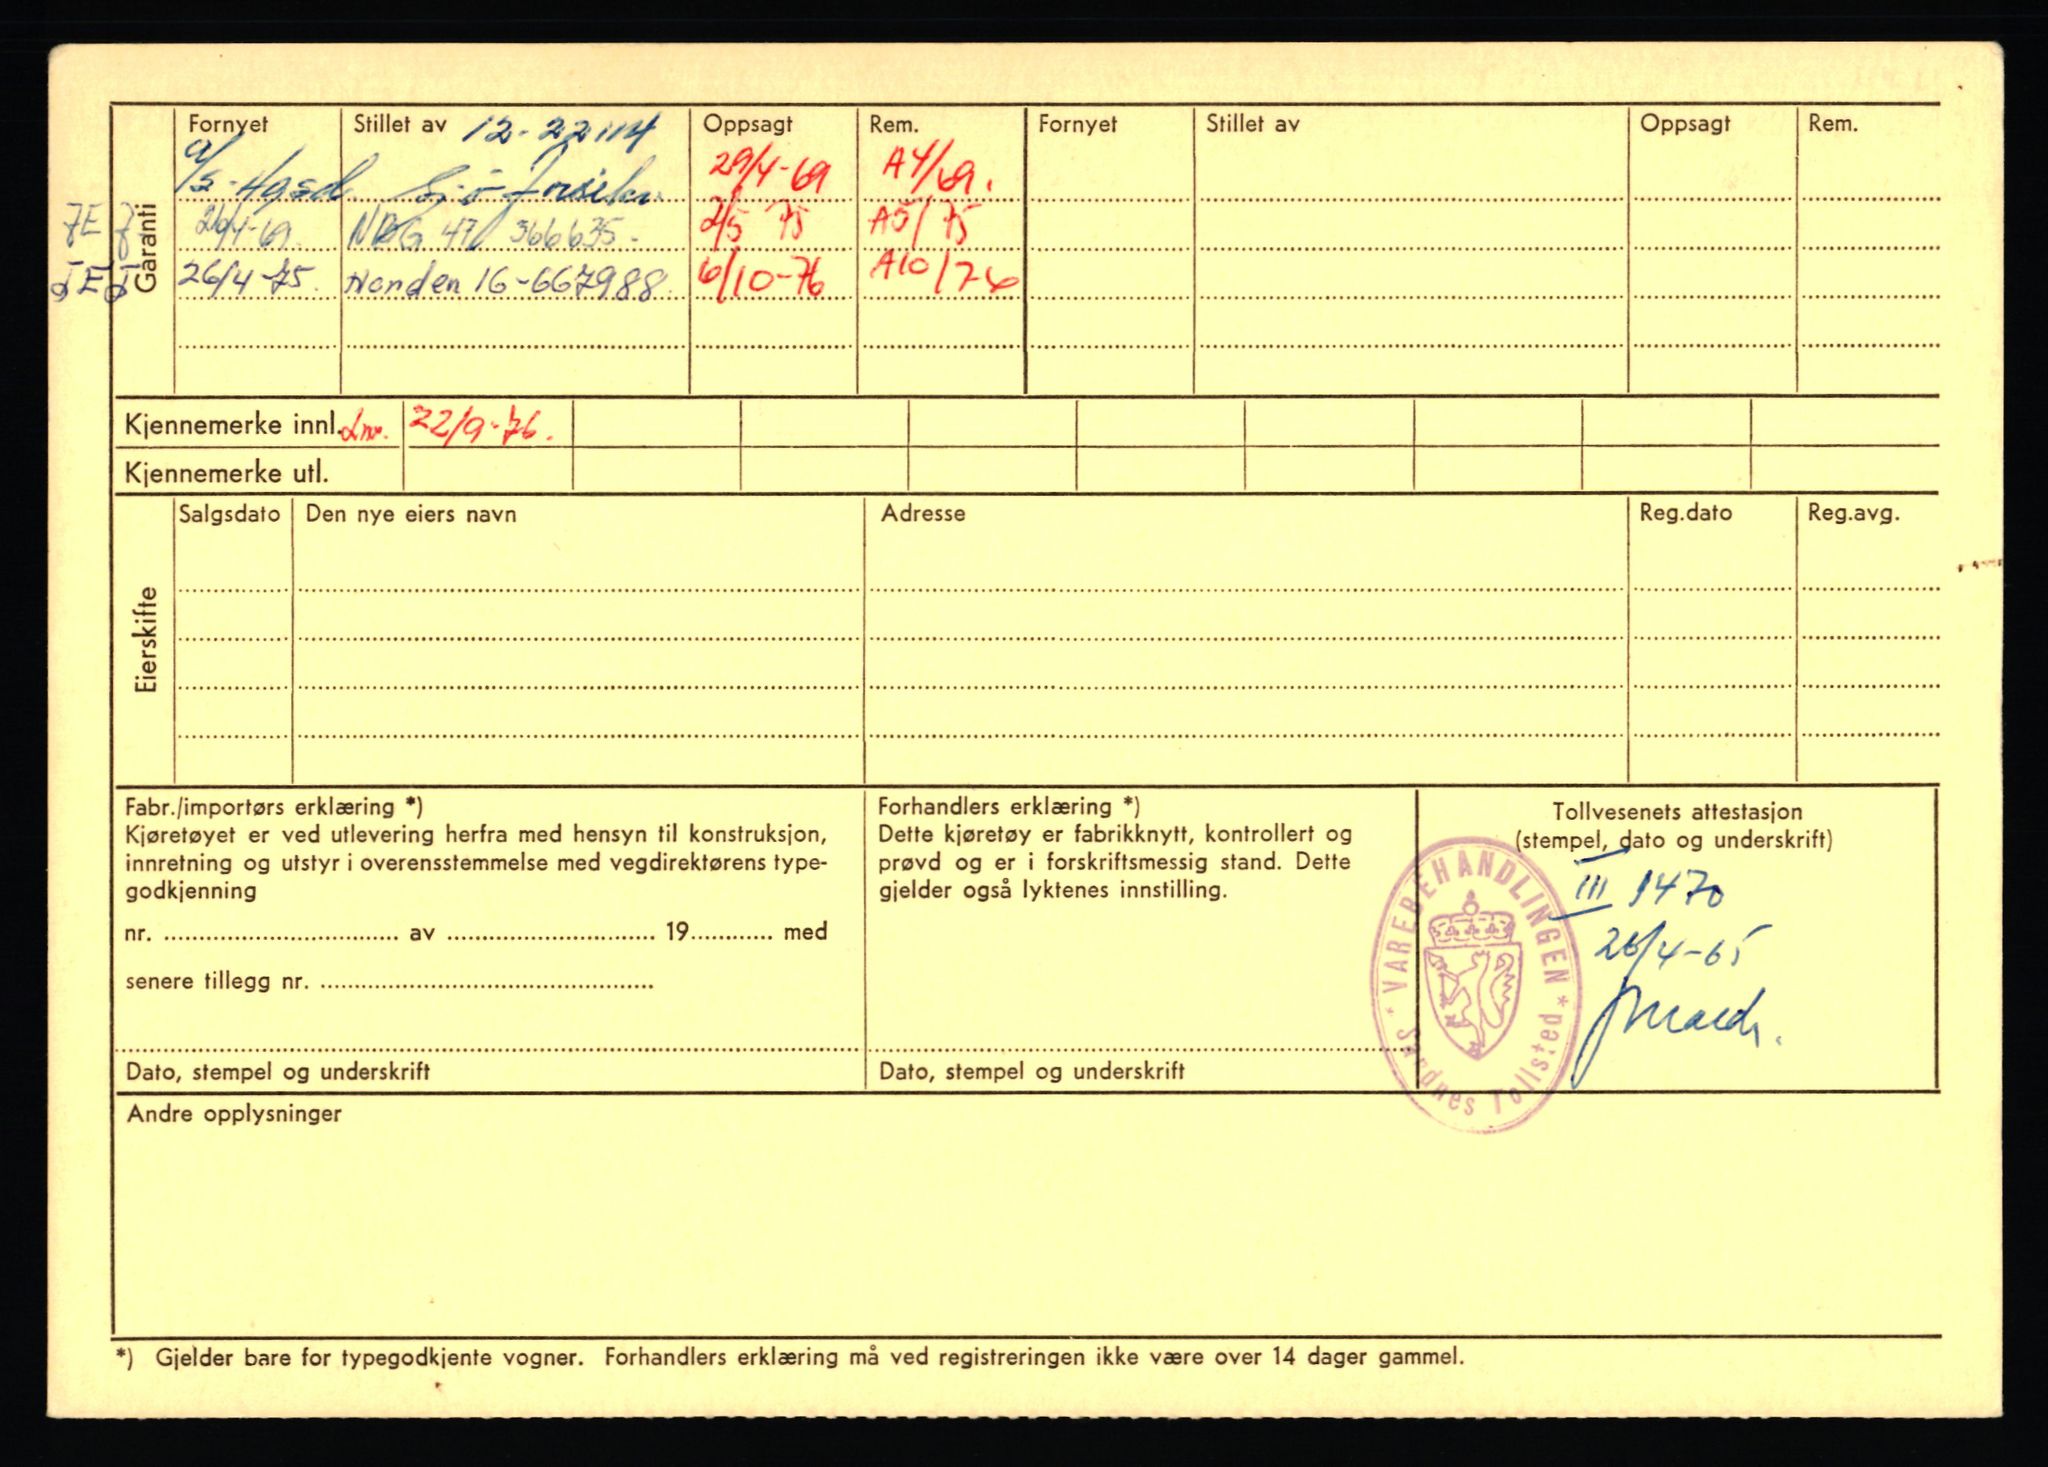 Fornyet Stillet av 12-22114 Oppsagt Rem. Fornyet Stillet av Oppsagt Rem.
29/4-69 A4/69.
Garanti
26/4-69. 47 366635. 2/5 75 A5/75
26/4-75. Norden 16-667988. 6/10-76 A10/76
Kjennemerke innl. 22/9-76.
Kjennemerke utl.
Eierskifte
Salgsdato Den nye eiers navn Adresse Reg.dato Reg.avg.
Fabr./importørs erklæring *)
Kjøretøyet er ved utlevering herfra med hensyn til konstruksjon,
innretning og utstyr i overensstemmelse med vegdirektørens type-
godkjenning
nr. .......... av .......... 19.......... med
senere tillegg nr. ..........
Dato, stempel og underskrift
Forhandlers erklæring *)
Dette kjøretøy er fabrikknytt, kontrollert og
prøvd og er i forskriftsmessig stand. Dette
gjelder også lyktenes innstilling.
Dato, stempel og underskrift
Tollvesenets attestasjon
(stempel, dato og underskrift)
III 1470
26/4-65
* VAREBEHANDLINGEN *
Sandnes Tollsted
Andre opplysninger
*) Gjelder bare for typegodkjente vogner. Forhandlers erklæring må ved registreringen ikke være over 14 dager gammel.